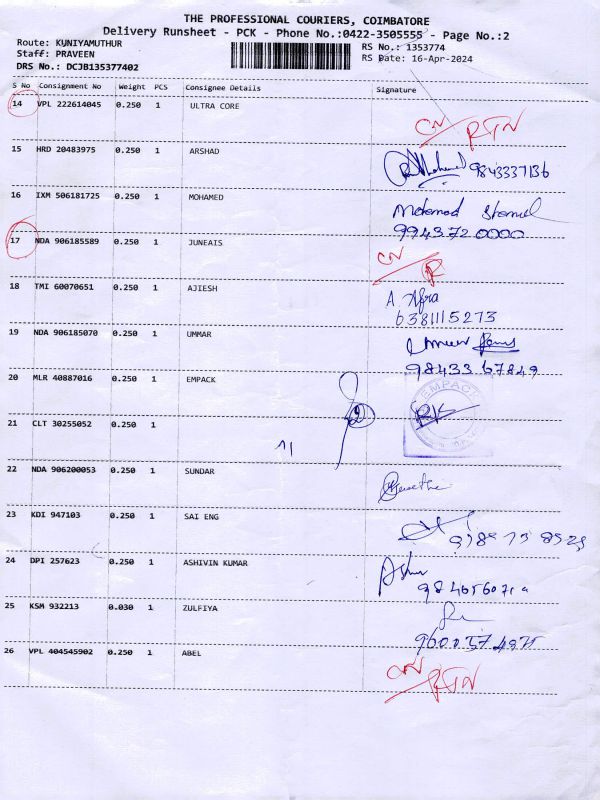 THE PROFESSIONAL COURIERS, COIMBATORE
Delivery Runsheet - PCK - Phone No.:0422-3505555 - Page No.:2
Route: KUNIYAMUTHUR
Staff: PRAVEEN
DRS No.: DCJB135377402
RS No.: 1353774
RS Date: 16-Apr-2024
S No Consignment No Weight PCS Consignee Details Signature
14 VPL 222614045 0.250 1 ULTRA CORE
CN RTN
15 HRD 20483975 0.250 1 ARSHAD
9843337136
16 IXM 506181725 0.250 1 MOHAMED
Mohamed
9943720000
17 NDA 906185589 0.250 1 JUNEAIS
CN R
18 TMI 60070651 0.250 1 AJIESH
A. Afra
6381115273
19 NDA 906185070 0.250 1 UMMAR
98433 67849
20 MLR 40887016 0.250 1 EMPACK
21 CLT 30255052 0.250 1
22 NDA 906200053 0.250 1 SUNDAR
23 KDI 947103 0.250 1 SAI ENG
24 DPI 257623 0.250 1 ASHIVIN KUMAR
25 KSM 932213 0.030 1 ZULFIYA
26 VPL 404545902 0.250 1 ABEL
CN RTN